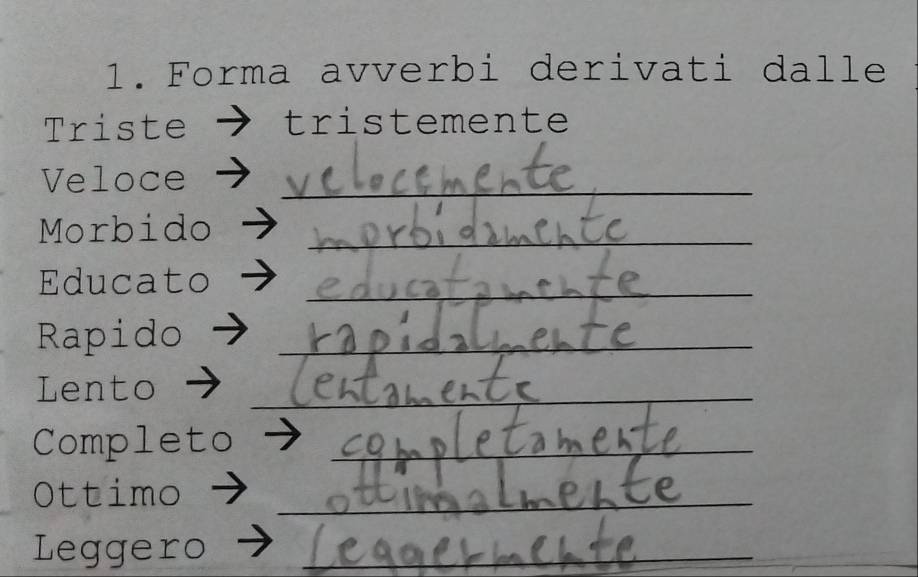 1. Forma avverbi derivati dalle
Triste → tristemente
Veloce → velocemente
Morbido → morbidamente
Educato → educatamente
Rapido → rapidalmente
Lento → lentamente
Completo → completamente
Ottimo → ottimalmente
Leggero → leggermente